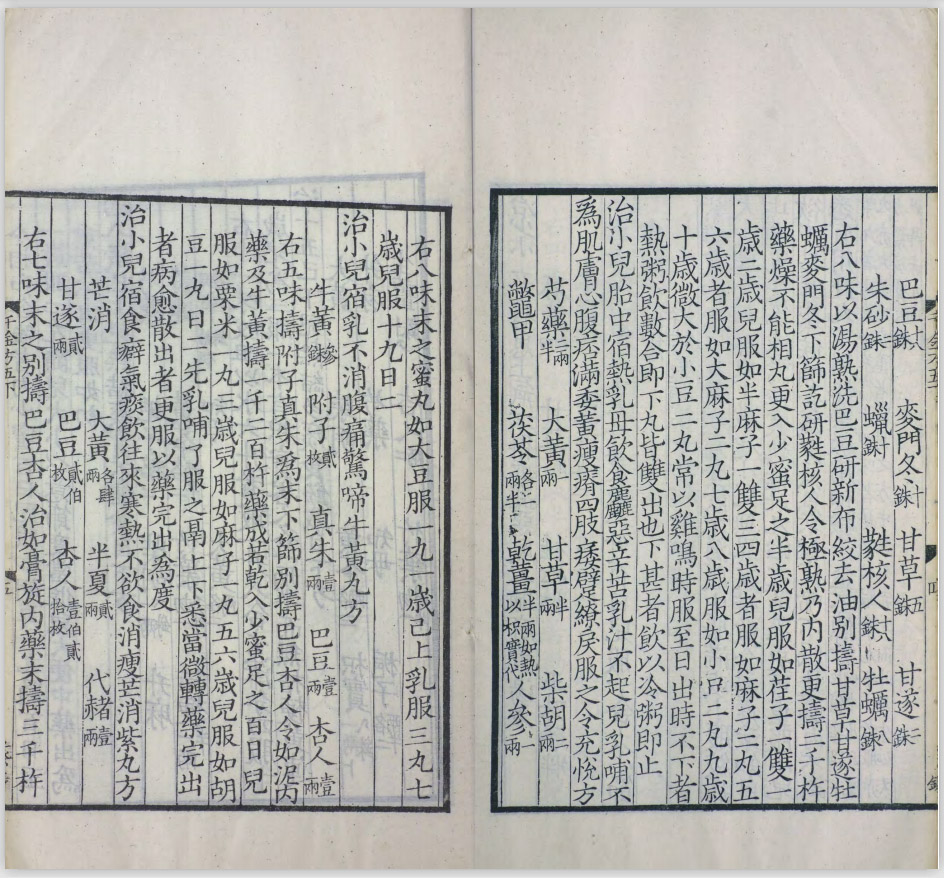 巴豆十八銖 麥門冬十銖 甘草五銖 甘遂二銖
朱砂二銖 蠟十銖 蕤核人十八銖 牡蠣八銖
右八味以湯熟洗巴豆研新布絞去油别擣甘草甘遂牡
蠣麥門冬下篩訖研蕤核人令極熟乃内散更擣二千杵
藥燥不能相丸更入少蜜足之半歲兒服如荏子一雙一
歲二歲兒服如半麻子一雙三四歲者服如麻子二丸五
六歲者服如大麻子二丸七歲八歲服如小豆二丸九歲
十歲微大於小豆二丸常以雞鳴時服至日出時不下者
熱粥飲數合即下丸皆雙出也下甚者飲以冷粥即止
治小兒胎中宿熱乳母飲食麤惡辛苦乳汁不起兒乳哺不
爲肌膚心腹痞滿萎黄瘦瘠四肢痿躄繚戾服之令充悦方
芍藥二兩半 大黄一兩 甘草半兩 柴胡二兩
鼈甲 茯苓各二兩半 乾薑半兩如熱以枳實代 人參一兩
右八味末之蜜丸如大豆服一丸一歲已上乳服三丸七
歲兒服十丸日二
治小兒宿乳不消腹痛驚啼牛黄丸方
牛黄參銖 附子貳枚 真朱壹兩 巴豆壹兩 杏人壹兩
右五味擣附子真朱爲末下篩别擣巴豆杏人令如泥内
藥及牛黄擣一千二百杵藥成若乾入少蜜足之百日兒
服如粟米一丸三歲兒服如麻子一丸五六歲兒服如胡
豆一丸日二先乳哺了服之鬲上下悉當微轉藥完出
者病愈散出者更服以藥完出為度
治小兒宿食癖氣痰飲往來寒熱不欲食消瘦芒消紫丸方
芒消 大黄各肆兩 半夏貳兩 代赭壹兩
甘遂貳兩 巴豆貳伯枚 杏人壹伯貳拾枚
右七味末之别擣巴豆杏人治如膏旋内藥末擣三千杵
千金方五下